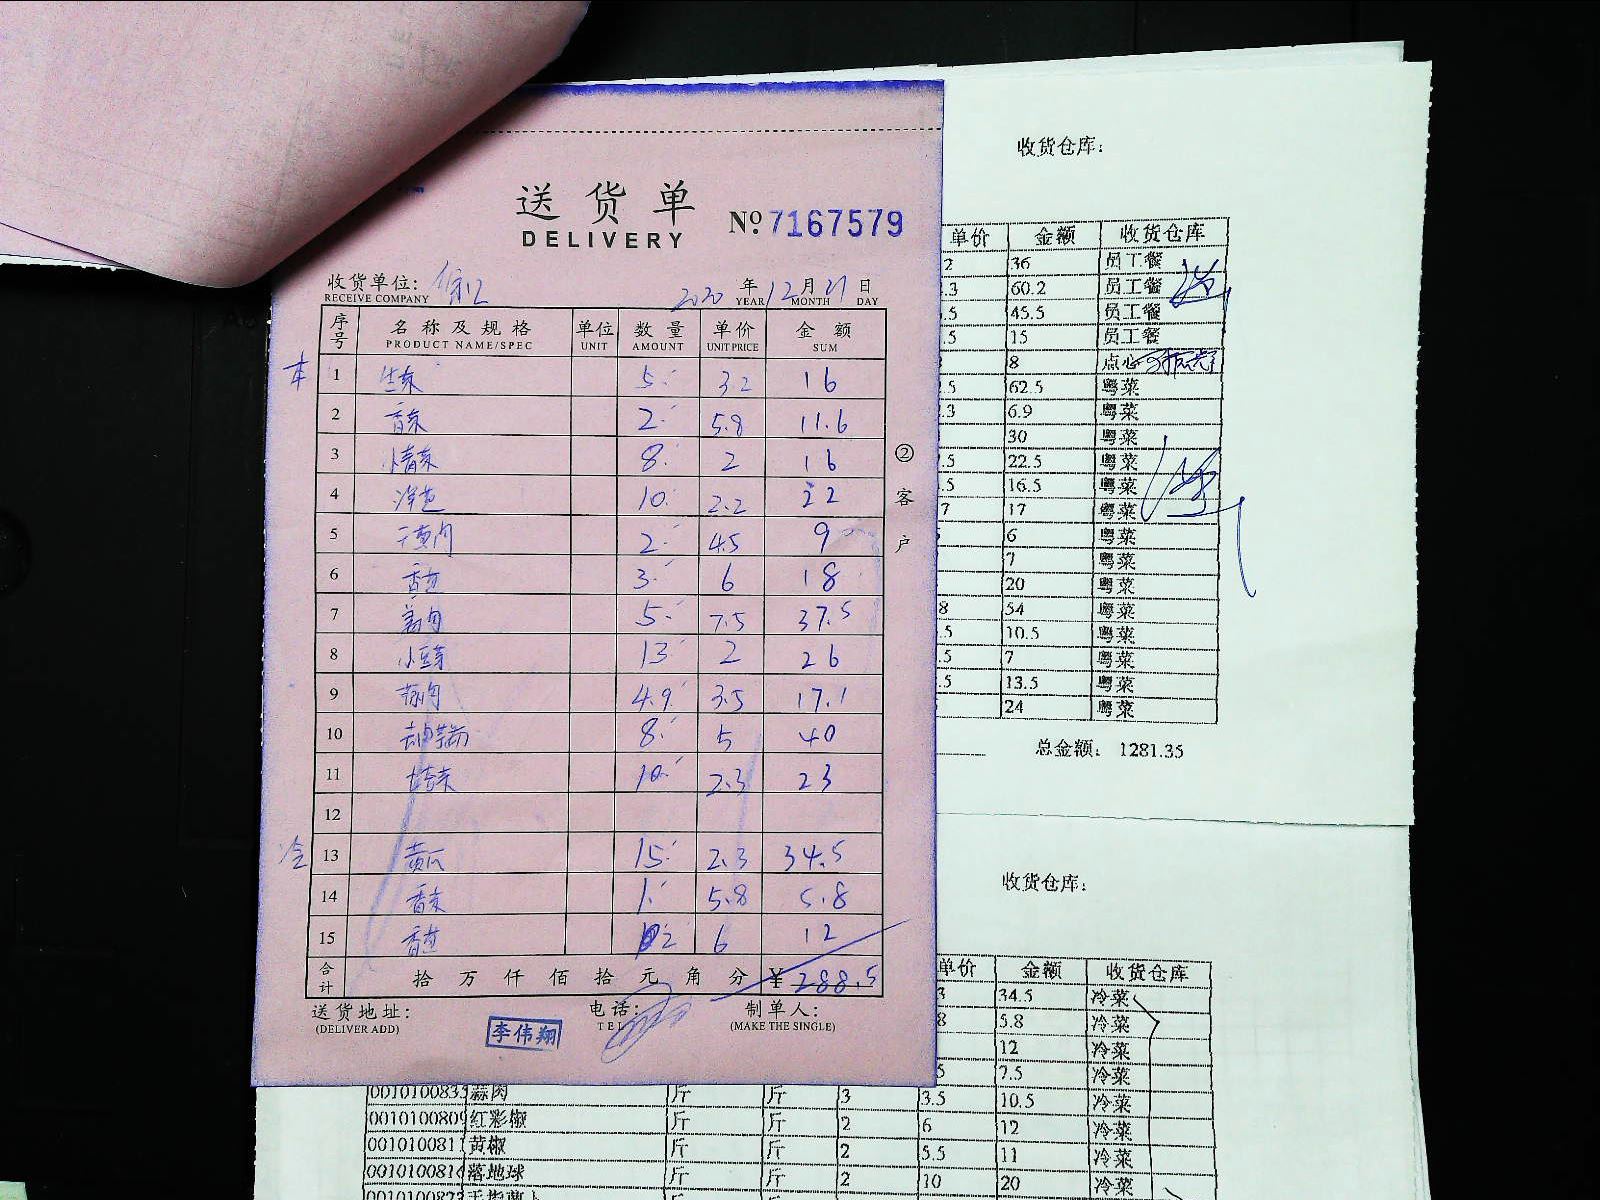 送货单
DELIVERY
№ 7167579
收货单位:
RECEIVE COMPANY
2020 年 12 月 27 日
YEAR MONTH DAY
序号 名称及规格 单位 数量 单价 金额
PRODUCT NAME/SPEC UNIT AMOUNT UNIT PRICE SUM
1 生菜 5 3.2 16
2 香菜 2 5.8 11.6
3 小青菜 8 2 16
4 洋葱 10 2.2 22
5 2 4.5 9
6 香芹 3 6 18
7 姜肉 5 7.5 37.5
8 小豆芽 13 2 26
9 蒜肉 4.9 3.5 17.1
10 8 5 40
11 10 2.3 23
12
冷
13 黄瓜 15 2.3 34.5
14 香菜 1 5.8 5.8
15 香芹 2 6 12
合计 拾万仟佰拾元角分 ¥ 288.5
② 客户
送货地址: 电话: 制单人:
(DELIVER ADD) TEL (MAKE THE SINGLE)
李伟翔
收货仓库:
单价 金额 收货仓库
2 36 员工餐
.3 60.2 员工餐
.5 45.5 员工餐
.5 15 员工餐
8 点心
.5 62.5 粤菜
.3 6.9 粤菜
30 粤菜
.5 22.5 粤菜
.5 16.5 粤菜
7 17 粤菜
6 粤菜
7 粤菜
20 粤菜
8 54 粤菜
.5 10.5 粤菜
.5 7 粤菜
.5 13.5 粤菜
24 粤菜
总金额: 1281.35
收货仓库:
单价 金额 收货仓库
3 34.5 冷菜
8 5.8 冷菜
12 冷菜
.5 7.5 冷菜
蒜肉 斤 斤 3 3.5 10.5 冷菜
红彩椒 斤 斤 2 6 12 冷菜
黄椒 斤 斤 2 5.5 11 冷菜
落地球 斤 斤 2 10 20 冷菜